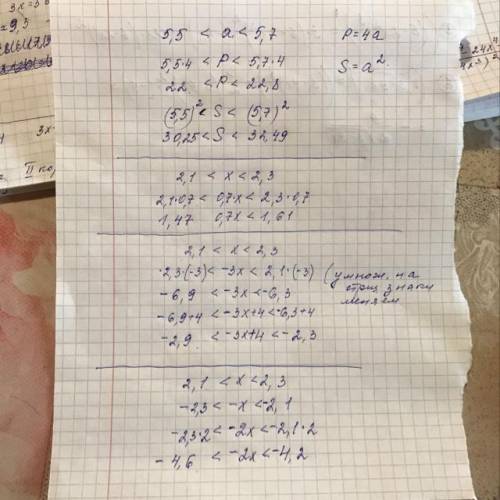 3x=3
=9,3
5,5 < a < 5,7 P=4a
5,5·4 < P < 5,7·4 S=a²
22 < P < 22,8
(5,5)² < S < (5,7)²
30,25 < S < 32,49
2,1 < x < 2,3
2,1·0,7 < 0,7x < 2,3·0,7
1,47 0,7x < 1,61
2,1 < x < 2,3
·2,3·(-3) < -3x < 2,1·(-3) (умнож. на
отриц знаки
меняем
-6,9 < -3x < -6,3
-6,9+4 < -3x+4 < -6,3+4
-2,9 < -3x+4 < -2,3
2,1 < x < 2,3
-2,3 < -x < -2,1
-2,3·2 < -2x < -2,1·2
-4,6 < -2x < -4,2
3x
II
24x